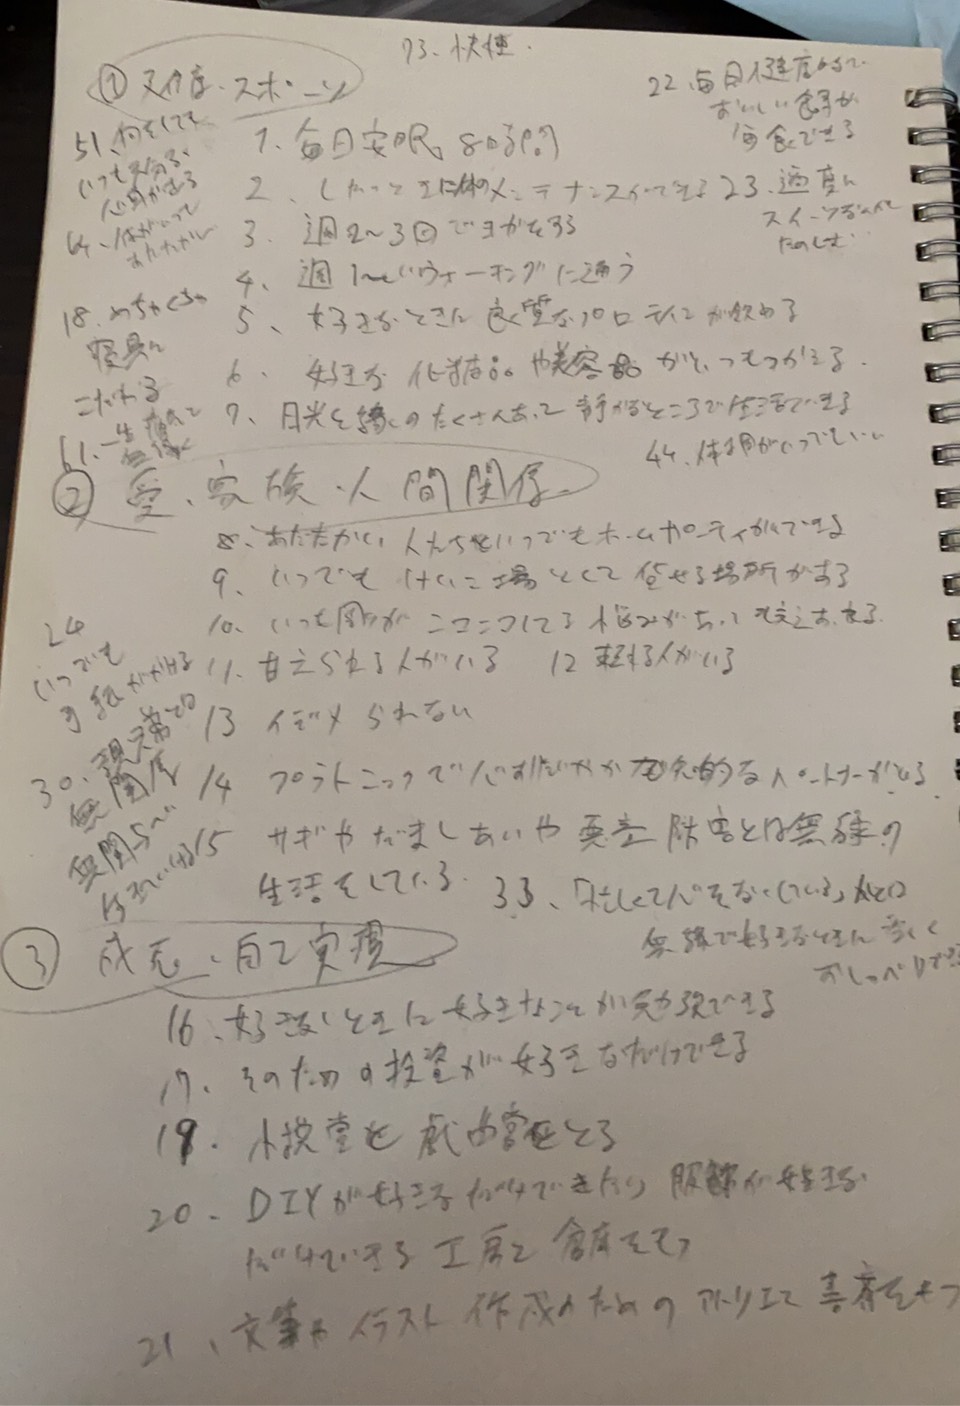 73. 快便.
① 健康・スポーツ
22. 毎日健康的で
おいしい食事が
毎食できる
51. 何をしても
いつも元気で
心身が
1. 毎日安眠 8時間
2. したいときに体のメンテナンスができる
23. 適度に
スイーツなんかで
たのしむ
64. 体がいつも
あたたかい
3. 週2〜3回でヨガをする
4. 週1〜くらいウォーキングに通う
18. めちゃくちゃ
寝具に
こだわる
5、好きなときに良質なプロテインが飲める
6. 好きな化粧品や美容品がいつもつかえる.
7. 月光と緑のたくさんあって静かなところで生活できる
61. 一生
無縁
44. 体調がいつでもいい
② 愛、家族・人間関係
8. あたたかい人たちといつでもホームパーティができる
9. いつでもけいこ場として貸せる場所がある
10. いつも周りがニコニコしてる 悩みがあっても支えあえる.
24
いつでも
手紙がかける
11. 甘えられる人がいる
12 頼れる人がいる
13 イジメられない
30.
無関係
無関
14 プラトニックで心おだやか知的なパートナーがいる
15 サギやだましあいや 妨害とは無縁の
生活をしている.
33、「忙しくて心をなくしている」人とは
無縁で好きなときに楽しく
おしゃべりできる
③ 成功、自己実現
16、好きなときに好きなことが勉強できる
17、そのための投資が好きなだけできる
19. 小説賞と戯曲賞をとる
20、DIYが好きなだけできたり 服飾が好きな
だけできる工房と倉庫をもつ
21、文筆やイラスト作成のためのアトリエと書斎をもつ